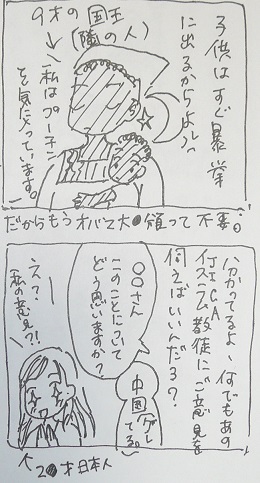 子供はすぐ暴挙
に出るからよぅっ
9才の国王
(隣の人)
←私はプーチン
を気に入っています。
だからもうオバマ大●領って不要。
分かってるよ、何でもあの
イスラム教徒にご意見を
伺えばいいんだろ?
○○さん
このことについて
どう思いますか?
中国
グレ
てる。
え??
私の意見?!
2●才日本人